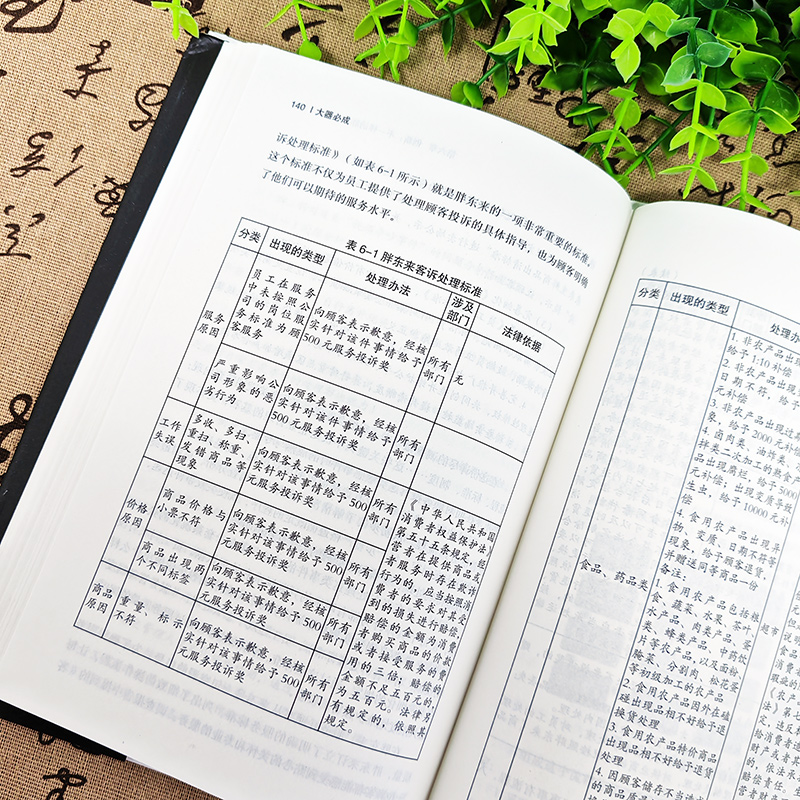 140 | 大器必成
诉处理标准》（如表6-1所示）就是胖东来的一项非常重要的标准，
这个标准不仅为员工提供了处理顾客投诉的具体指导，也为顾客明确
了他们可以期待的服务水平。
表6-1 胖东来客诉处理标准
分类 出现的类型 处理办法 涉及部门 法律依据
服务
原因
员工在服务
中未按照公
司的岗位服
务标准为顾
客服务
向顾客表示歉意，经核
实针对该件事情给予
500元服务投诉奖
所有
部门
无
严重影响公
司形象的恶
劣行为
向顾客表示歉意，经核
实针对该事情给予500
元服务投诉奖
所有
部门
工作
失误
多收、多扫、
重扫、称重、
发错商品等
现象
向顾客表示歉意，经核
实针对该事情给予500
元服务投诉奖
所有
部门
价格
原因
商品价格与
小票不符
向顾客表示歉意，经核
实针对该事情给予500
元服务投诉奖
所有
部门
商品出现两
个不同标签
向顾客表示歉意，经核
实针对该事情给予500
元服务投诉奖
所有
部门
商品
原因
重量、标示
不符
向顾客表示歉意，经核
实针对该事情给予500
元服务投诉奖
所有
部门
《中华人民共和国
消费者权益保护法》
第五十五条规定，经
营者在提供商品或
者服务时存在欺诈
行为的，应当按照消
费者的要求对其受
到的损失进行赔偿，
赔偿的金额为消费
者购买商品的价款
或者接受服务的费
用的三倍；赔偿的
金额不足五百元的，
为五百元。法律另
有规定的，依照其
规定。
分类 出现的类型
食品、药品类
1. 非农产品出现
给予1:10补偿
2. 非农产品出现
日期不符，给予
元补偿
3. 非农产品出现过期
象，给予2000元补偿
4. 卤肉类、油炸类、
拌类二次加工的熟食产
品出现腐烂，给予5000
元补偿；出现变质导致
生虫，给予10000元补
偿
4. 食用农产品出现异
物、变质、日期不符等
现象，给予顾客退货，
并赠送同等商品一份
备注：
1. 食用农产品包括粮
食、蔬菜、水果、茶叶、
水产品、肉类产品、蛋
类、蜂类产品、中药饮
片等农产品，以及面粉、
腌菜、分割肉、棉花蚕
等初级加工的农产品
2. 食用农产品因外在磕
碰出现相不好给予退
换货处理
3. 食用农产品特价商品
出现品相不好给予退货
处理
4. 因顾客储存不当造
超市